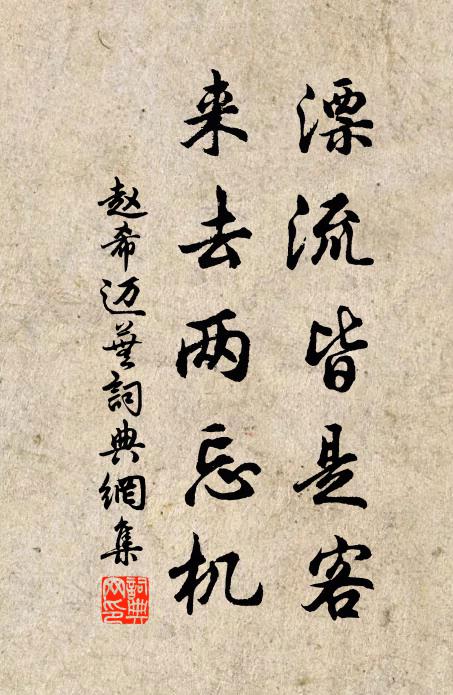 漂流皆是客
来去两忘机
赵希迈華詞典網集
詞典
网印